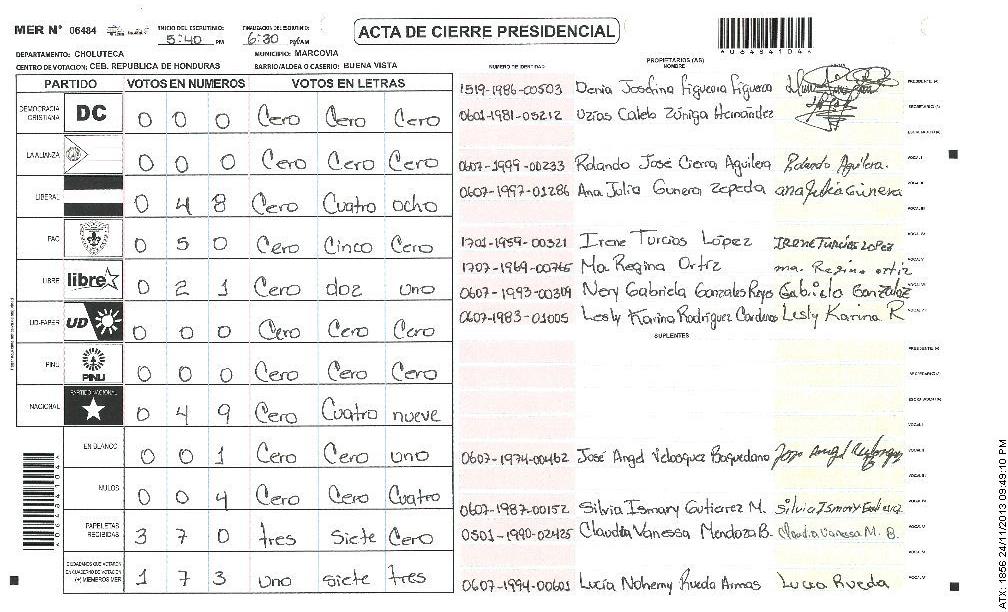 MER N° 06484 INICIO DEL ESCRUTINIO: 5:40 PM FINALIZACION DEL ESCRUTINIO: 6:30 PM/AM ACTA DE CIERRE PRESIDENCIAL *06484104*
DEPARTAMENTO: CHOLUTECA MUNICIPIO: MARCOVIA
CENTRO DE VOTACION: CEB. REPUBLICA DE HONDURAS BARRIO/ALDEA O CASERIO: BUENA VISTA
PARTIDO VOTOS EN NUMEROS VOTOS EN LETRAS
DEMOCRACIA CRISTIANA DC 0 0 0 Cero Cero Cero
LA ALIANZA 0 0 0 Cero Cero Cero
LIBERAL 0 4 8 Cero Cuatro ocho
PAC 0 5 0 Cero Cinco Cero
LIBRE libre 0 2 1 Cero doz uno
UD-FAPER UD 0 0 0 Cero Cero Cero
PINU PINU 0 0 0 Cero Cero Cero
NACIONAL PARTIDO NACIONAL 0 4 9 Cero Cuatro nueve
EN BLANCO 0 0 1 Cero Cero uno
NULOS 0 0 4 Cero Cero Cuatro
PAPELETAS RECIBIDAS 3 7 0 tres siete Cero
CIUDADANOS QUE VOTARON EN CUADERNO DE VOTACION (+) MIEMBROS MER 1 7 3 uno siete tres
NUMERO DE IDENTIDAD PROPIETARIOS (AS) NOMBRE FIRMA
1519-1986-00503 Denia Josefina Figueroa Figueroa PRESIDENTE (A)
0601-1981-05212 Uzías Caleb Zúniga Hernández SECRETARIO (A)
ESCRUTADOR (A)
0607-1999-00233 Rolando José Cierra Aguilera Rolando Aguilera. VOCAL I
0607-1997-01286 Ana Julia Gunera Zepeda ana julia Gunera VOCAL II
VOCAL III
1701-1959-00321 Irene Turcios López Irene Turcios Lopez VOCAL IV
1707-1969-00765 Ma. Regina Ortiz ma. Regina ortiz VOCAL V
0607-1993-00309 Nery Gabriela Gonzales Reyes Gabriela Gonzalez
0607-1983-01005 Lesly Karina Rodríguez Cardenas Lesly Karina R
SUPLENTES
PRESIDENTE (A)
SECRETARIO (A)
ESCRUTADOR (A)
VOCAL I
0607-1974-00462 José Angel Velasquez Baquedano Jose Angel
0607-1987-00152 Silvia Ismary Gutierrez M. Silvia Ismary Gutierrez
0501-1990-02425 Claudia Vanessa Mendoza B. Claudia Vanessa M. B.
0607-1994-00601 Lucía Nohemy Rueda Armas Lucia Rueda
*06484104*
ATX-1856 24/11/2013 09:49:10 PM